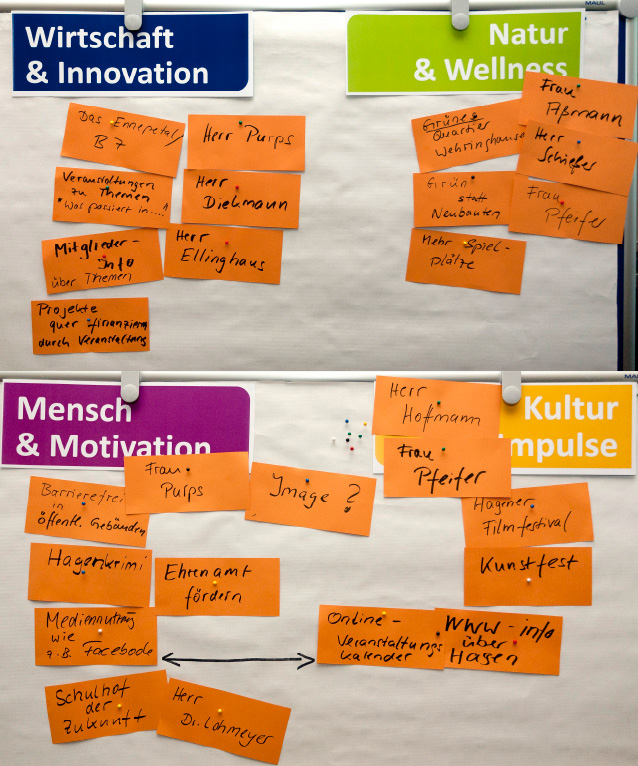 MAUL
Wirtschaft
& Innovation
Das Ennepetal
B7
Herr Purps
Veranstaltungen
zu Themen
"Was passiert in....?
Herr
Diekmann
Mitglieder-
Info
über Themen
Herr
Ellinghaus
Projekte
quer finanzieren
durch Veranstaltung
Natur
& Wellness
Grünes
Quartier
Wehringhausen
Frau
Aßmann
Herr
Schiefer
Grün
statt
Neubauten
Frau
Pfeifer
Mehr Spiel-
plätze
Mensch
& Motivation
Frau
Purps
Image ?
Barrierefrei
in
öffentl. Gebäuden
Hagenkrimi
Ehrenamt
fördern
Mediennutzung
wie
z.B. Facebook
Schulhof
der
Zukunft
Herr
Dr. Lohmeyer
Herr
Hofmann
Kultur
mpulse
Frau
Pfeifer
Hagener
Filmfestival
Kunstfest
Online-
Veranstaltungs
kalender
WWW-info
über
Hagen